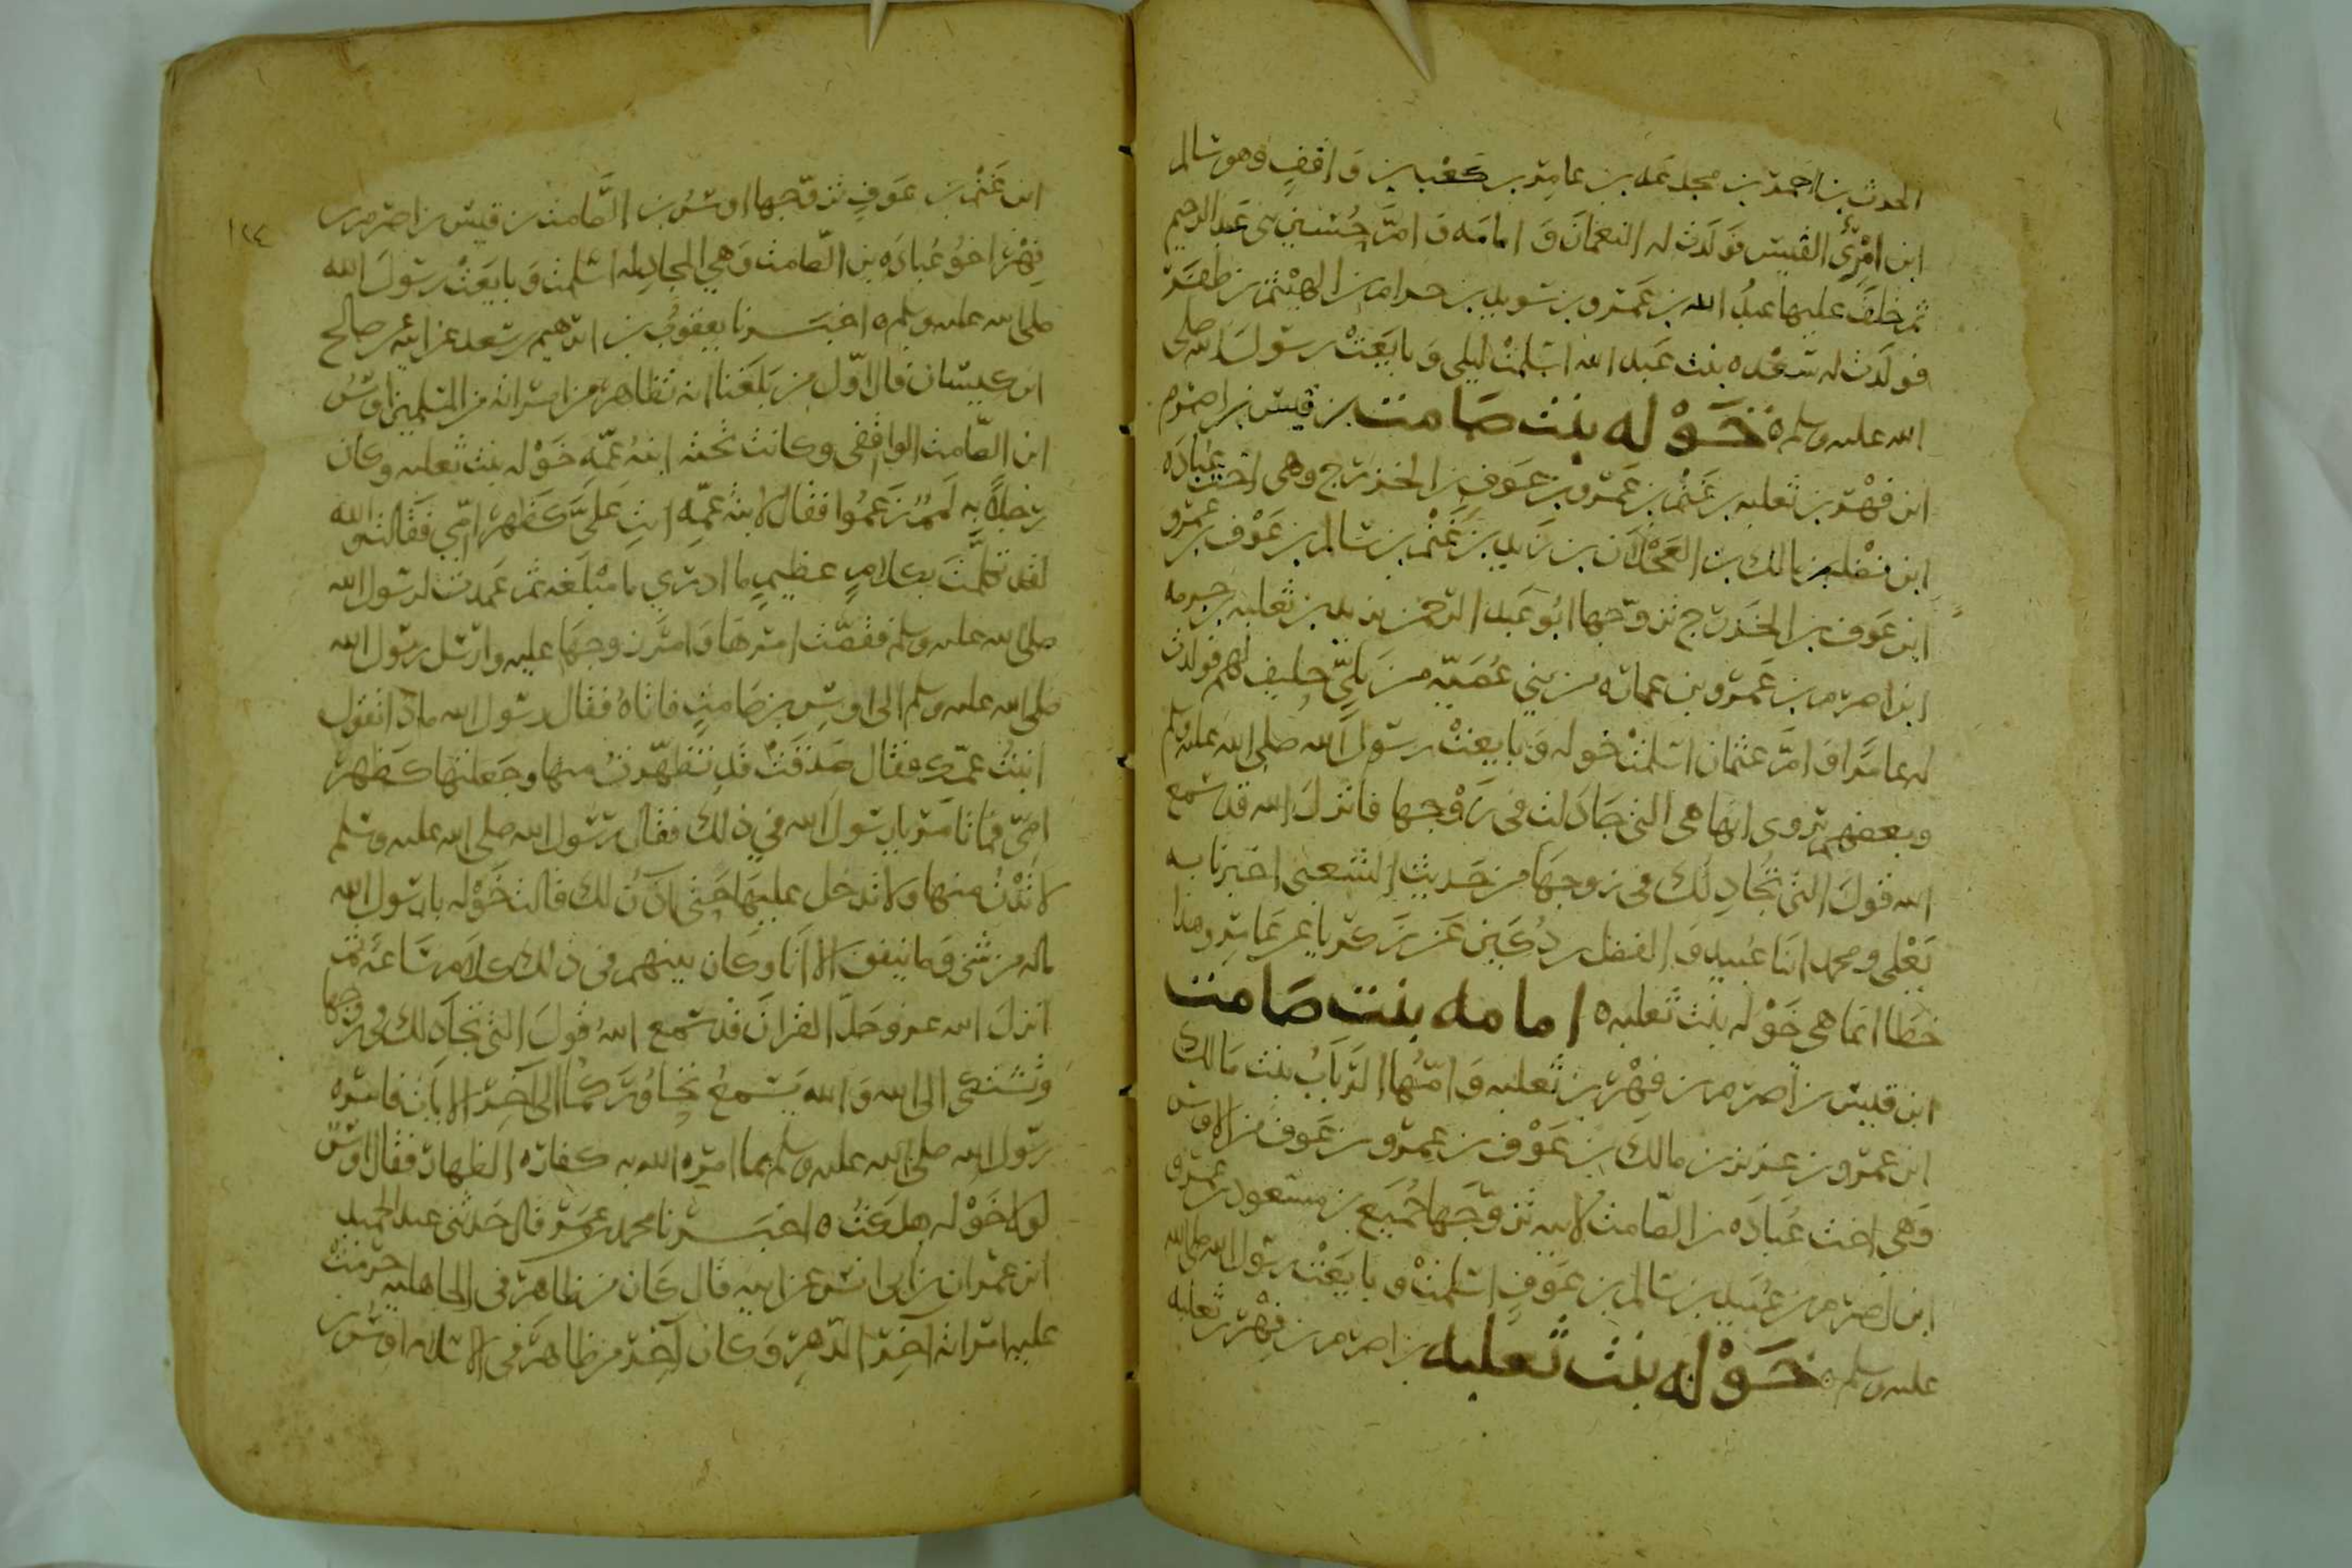 الحرث بن احمر بن مجدعه بن عامر بن كعب بن واقف وهو سالم
ابن امرئ القيس فولدت له النعمان و امامه و ام حسين بني عبد الرحيم
ثم خلف عليها عبد الله بن عمرو بن سويد بن حرام بن الهيثم بن ظفر
فولدت له سعده بنت عبد الله اسلمت ليلى و بايعت رسول الله صلى
الله عليه وسلم ه خَوْله بنت صامت بن قيس بن اصرم
ابن فهْر بن ثعلبه بن غنم بن عمرو بن عوف بن الخزرج وهى اخت عُبادَه
ابن نضْله بن مالك بن العجْلان بن زيد بن غَنْم بن سالم بن عَوْف بن عمرو
ابن عوف بن الخزرج تزوّجها ابُو عَبد الرحمن يزيد بن ثعلبه بن خزمه
ابن اصرم بن عَمرو بن عماره من بني عُصَيّه من بَلِىّ حليف لهم فولدت
له عامرًا و امّ عثمان اسلمت خوله و بايعت رسول الله صلى الله عليه وسلم
وبعضهم يروى انها هى التى جادلت فى زوجها فانزل الله قد سمع
الله قول التى تجادلك فى زوجها من حديث الشعبى اخبرنا به
يَعْلى ومحمد ابنا عُبيد و الفضل بن دُكَين عن زكريا عن عامر وهذا
خطا انما هى خَوْله بنت ثعلبه ه امامه بنت صامت
ابن قيس بن اصرم بن فِهْر بن ثعلبه و امّها الرَبابُ بنت مالك
ابن عمرو بن عزيز بن مالك بن عَوْف بن عمرو بن عَوف من الاوس
وهى اخت عُبادَه بن الصّامت لابيه تزوّجها جُميع بن مسعود بن عمرو
ابن اصرم بن عُبيد بن سالم بن عوفٍ اسلمت و بايَعَتْ رسول الله صلى الله
عليه وسلم ه خَوْله بنت ثعلبه بن اصرم بن فِهْر بن ثعلبه
١٢٤
ابن غَنْم بن عَوفٍ تزوّجها اوسُ بن الصّامت بن قيس بن اصرم بن
فِهْر اخُو عُبادَه بن الصّامت وَهي المجادِله اسلمت وَ بايَعَتْ رسولَ الله
صلى الله عليه وسلم ه اخبرنا يعقوب بن ابرهيم بن سعد عن ابيه عن صالح
ابن كيسان قال اوّل من بَلَغنا انه تظاهر من امراته من المسلمين اوسُ
ابن الصّامت الواقفى وكانت تحته ابنة عمّه خَوْله بنت ثعلبه وكان
رجلاً به لَمَمٌ زعمُوا فقال لابنة عمّه انتِ عَلَىَّ كظَهْر اُمّي فقالت والله
لقد تكلّمتَ بكلامٍ عظيمٍ ما ادري ما مَبْلَغه ثم عَمدت لرسُول الله
صلى الله عليه وسلم فقصّت امرهَا وَ امر زوجها عليه وارسل رسُول الله
صلى الله عليه وسلم الى اوسِ بن صَامتٍ فاتاهُ فقال رسول الله ماذا تقول
ابنتُ عمّك فقال صَدَقَتْ قد تظهّرتُ منها وجعلتها كظَهْر
امّى فما تامر يا رسول الله في ذلك فقال رسُول الله صلى الله عليه وسلم
لا تدْنُ منها ولا تدخل عليها حتى آذن لك قالت خَوْله يا رسُول الله
ماله من شى وَما ينفق الا انا وكان بينهم فى ذلك كلام سَاعَه ثم
انزلَ الله عز وجلّ القران قد سمع اللهُ قولَ التى تجادِلك فى زوجها
وتشتكى الى الله وَ الله يسمعُ تحاورَكُما الى آخر الايات فامره
رسُول الله صلى الله عليه وسلم بما امره الله به كفاره الظهار فقال اوسٌ
لولا خَوْله هلكتُ ه اخبرنا محمد بن عمر قال حَدثنى عبد الحميد
ابن عمران بن ابى انس عن ابيه قال كَان من ظاهرَ فى الجاهليه حرّمتْ
عليه امراته آخِر الدّهرِ وَكان آخِر من ظاهر فى الاسلام اوس بن